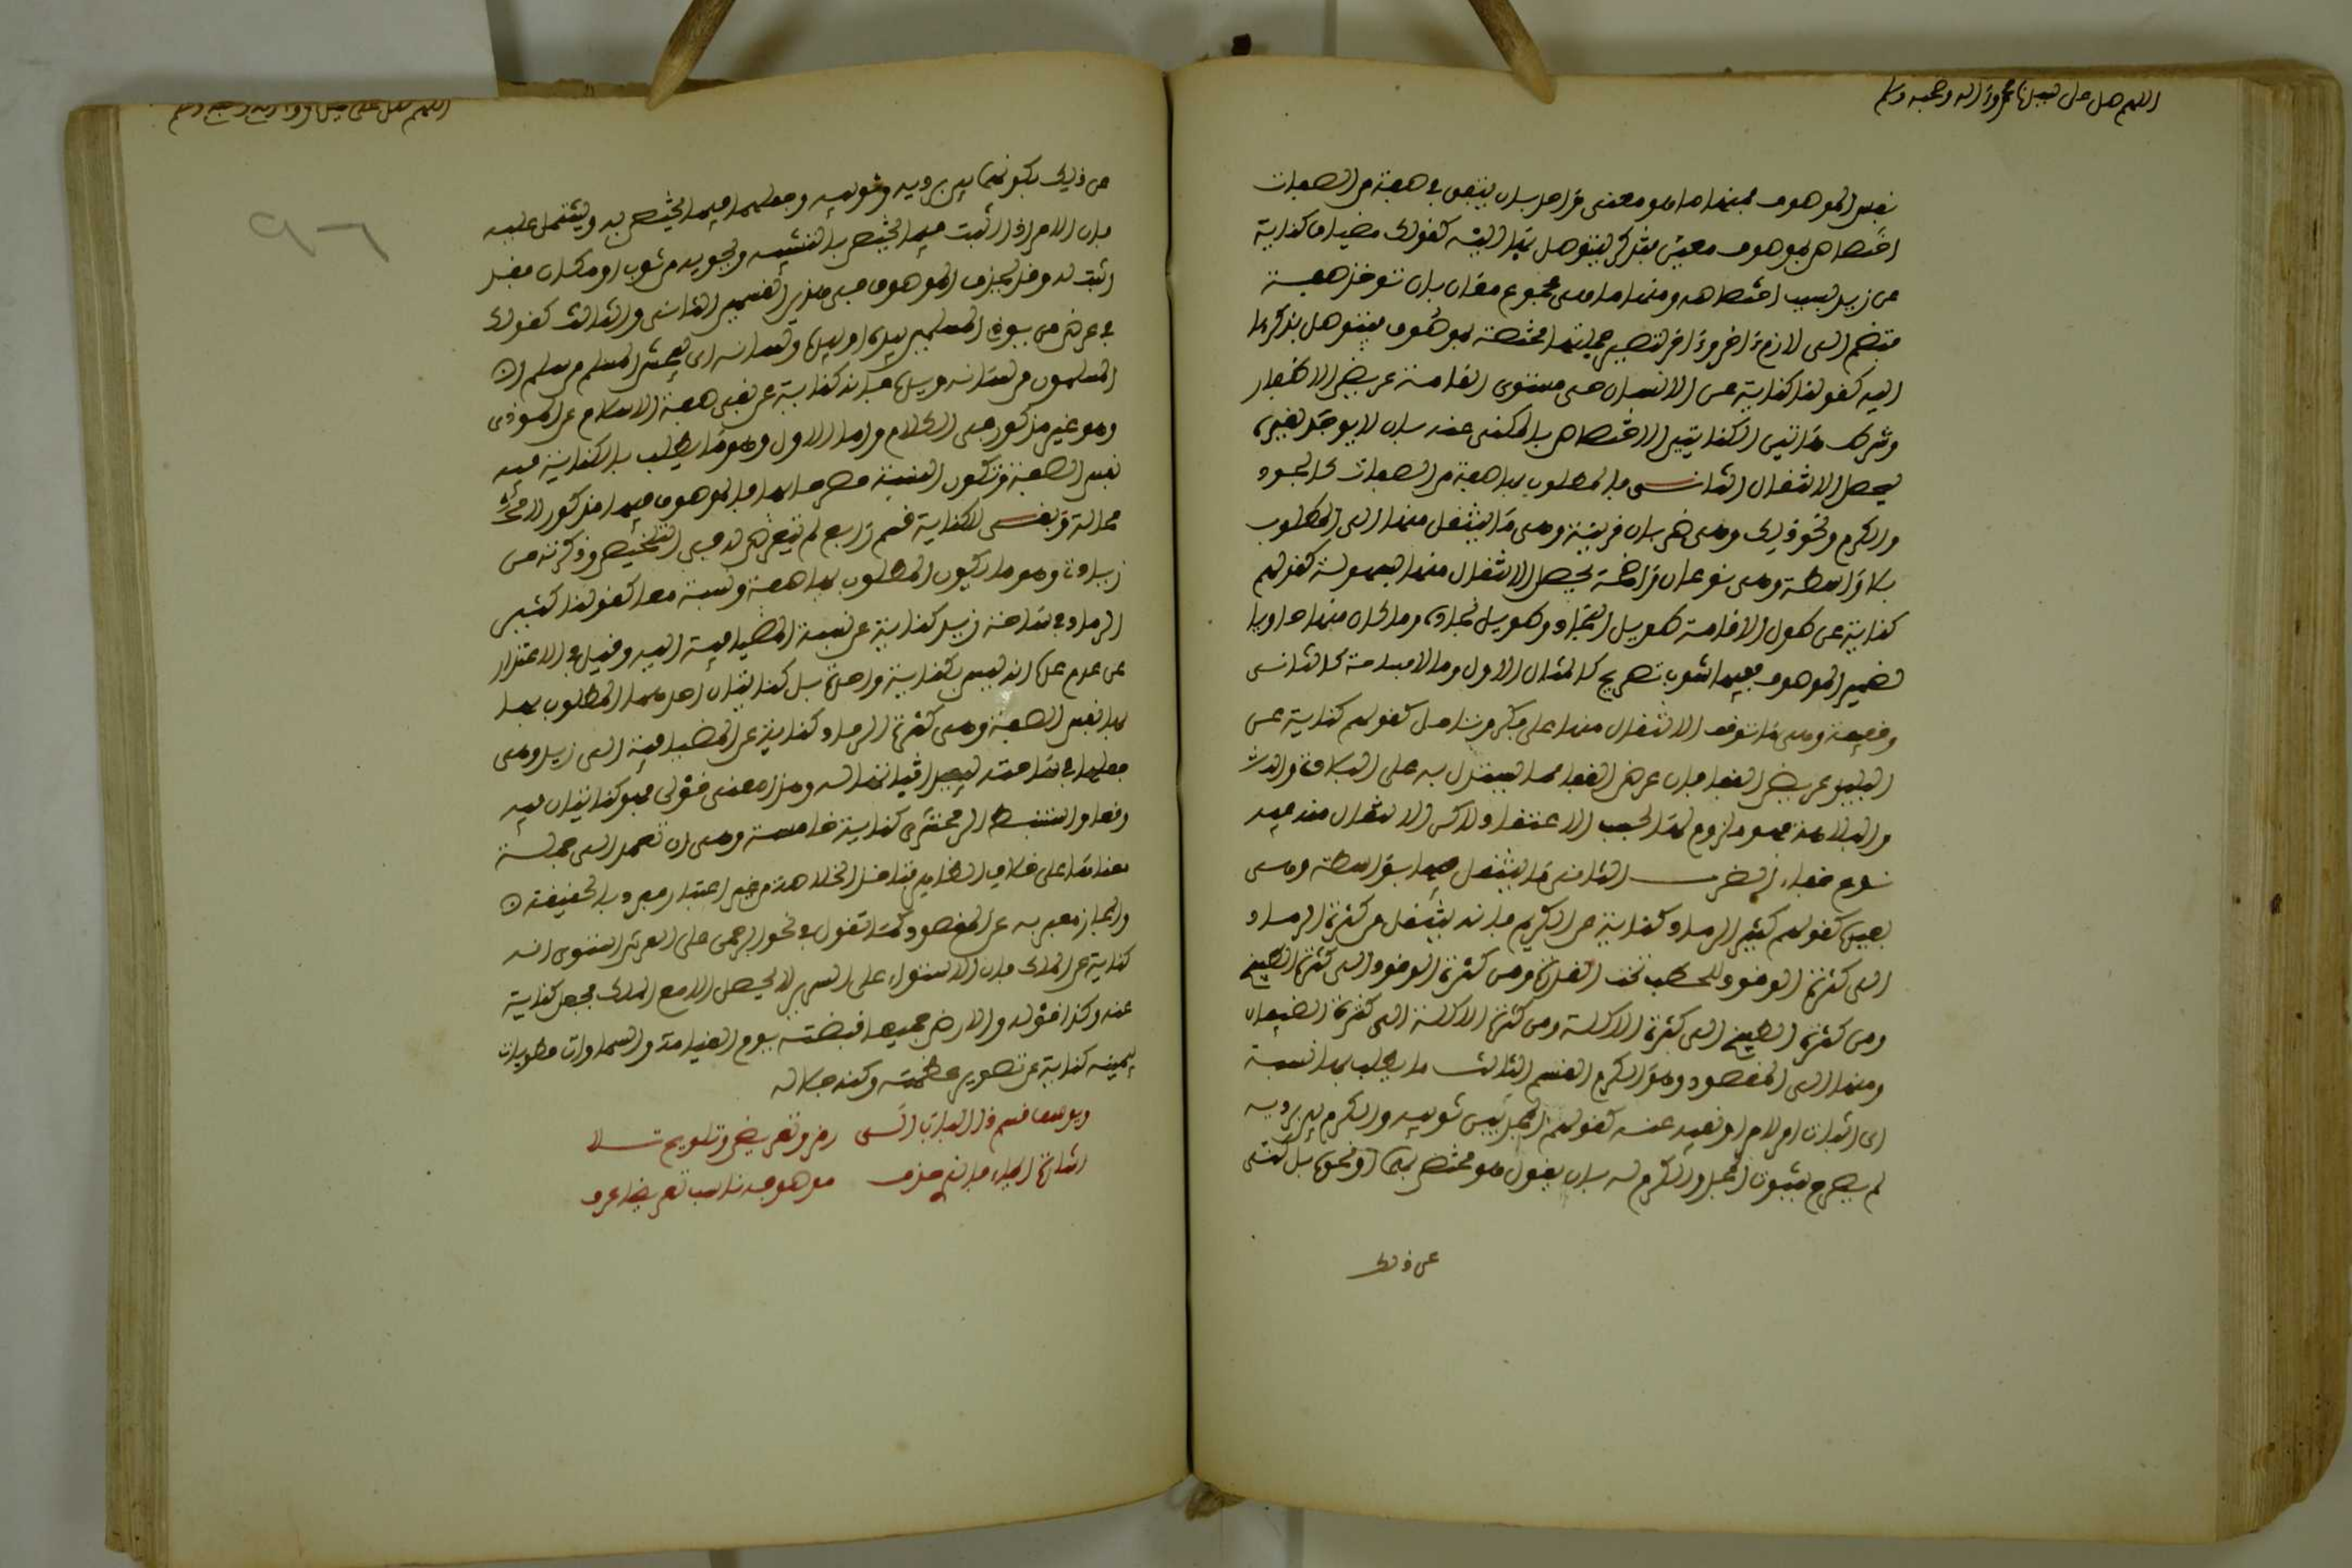 اللهم صل على سيدنا محمد وءاله وصحبه وسلم
نفس الموصوف فمنها ما هو معنى واحد بان يتفق في صفة من الصفات
اختصاص بموصوف معين فتذكر ليتوصل بها اليه كقولك مضياف كناية
عن زيد لسبب اختصاصه ومنها ما هو مجموع معان بان توخذ صفة
فتضم الى لازم ءاخر وءاخر لتصير جملتها مختصة بموصوف فيتوصل بذكرها
اليه كقولنا كناية عن الانسان حي مستوى القامة عريض الاظفار
وشرط هاتين الكنايتين الاختصاص بالمكنى عنه بان لا يوجد لغيره
ليحصل الانتقال الثانى ما المطلوب بها صفة من الصفات كالجود
والكرم ونحو ذلك وهى ضربان قريبة وهى ما ينتقل منها الى المطلوب
بلا واسطة وهى نوعان واضحة يحصل الانتقال منها بسهولة كقولهم
كناية عن طول القامة طويل النجاد وطويل نجاده وما كان منها حاويا
لضمير الموصوف ففيها شوب تصريح كالمثال الاول وما لا فساذجة كالثانى
وخفية وهى ما توقف الانتقال منها على فكر وتامل كقولهم كناية عن
البليد عريض القفا فان عرض القفا مما يستدل به على البلادة والبله
والبلاهة فهو ملزوم لها لحسب الاعتقاد ولاكن الانتقال منه فيه
نوع خفاء الضرب الثانى ما ينتقل فيها بواسطة وهى
بعيدة كقولهم كثير الرماد كناية عن الكريم فانه ينتقل من كثرة الرماد
الى كثرة الوقود للحطب تحت القدر ومن كثرة الوقود الى كثرة الطبخ
ومن كثرة الطبخ الى كثرة الاكلة ومن كثرة الاكلة الى كثرة الضيفان
ومنها الى المقصود وهو الكرم القسم الثالث ما يطلب بها نسبة
اى اثبات امر لامر او نفيه عنه كقولهم المجد بين ثوبيه والكرم بين برديه
لم يصرح بثبوت المجد والكرم له بان يقول هو مختص بها او نحوه بل كنى
عن ذلك
اللهم صل على سيدنا محمد وءاله وصحبه وسلم
٩٦
عن ذلك بكونهما بين برديه وثوبيه وجعلهما فيما يختص به ويشتمل عليه
فان الامر اذا اثبت فيما يختص بالشيء ويحويه من ثوب او مكان فقد
اثبت له وقد يحذف الموصوف في هذين القسمين الثانى والثالث كقولك
في عرض من يوذى المسلمين بيده او لسانه اى المسلم من سلم
المسلمون من لسانه ويده فانه كناية عن نفى صفة الاسلام عن الموذى
وهو غير مذكور في الكلام واما الاول وهو ما يطلب بالكناية فيه
نفس الصفة وتكون النسبة مصرحا بها فالموصوف فيها مذكور لا
محالة وبقى للكناية قسم رابع لم يتعرض له في التلخيص وذكرته من
زيادتى وهو ما يكون المطلوب بها صفة ونسبة معا كقولنا كثير
الرماد في ساحة زيد كناية عن نسبة المضيافية اليه وقيل في الاعتذار
عن عدم عدها انه ليس بكناية واحدة بل كنايتان احداهما المطلوب بها
بها نفس الصفة وهى كثرة الرماد كناية عن المضيافية الى زيد وهى
جعلها في ساحته ليفيد اثباتها له وهذا معنى قولى فهو كنايتان فيه
وفعا واستنبط الزمخشرى كناية خامسة وهى ان تعمد الى جملة
معناها على خلاف الظاهر فتاخذ الخلاصة من غير اعتبار مفردبالحقيقة
والمجاز فتعبر به عن المقصود كما تقول في نحو الرحمن على العرش استوى انه
كناية عن الملك فان الاستواء على السرير لا يحصل الا مع الملك فجعل كناية
عنه وكذا قوله والارض جميعا قبضته يوم القيامة والسماوات مطويات
بيمينه كناية عن تصوير عظمته وكنه جلاله
ويوسف قسم ذا الباب الى رمز وتعريض وتلويح تلا
اشارة ايماء فان حذف موصوف ناسب تعريضا عرف